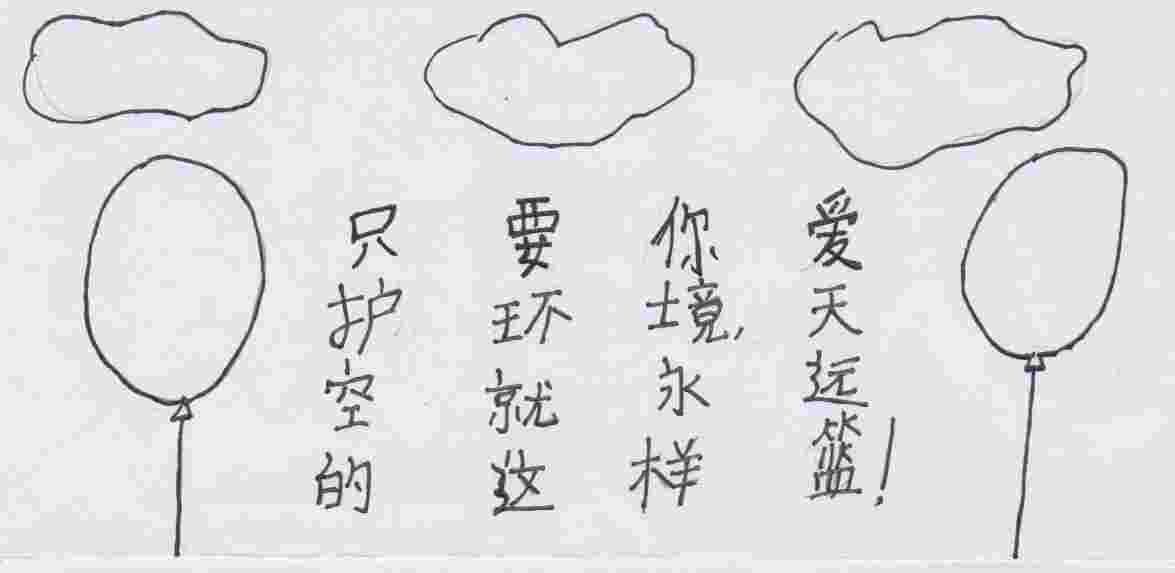 只要你爱
护环境,天
空就永远
的这样篮!